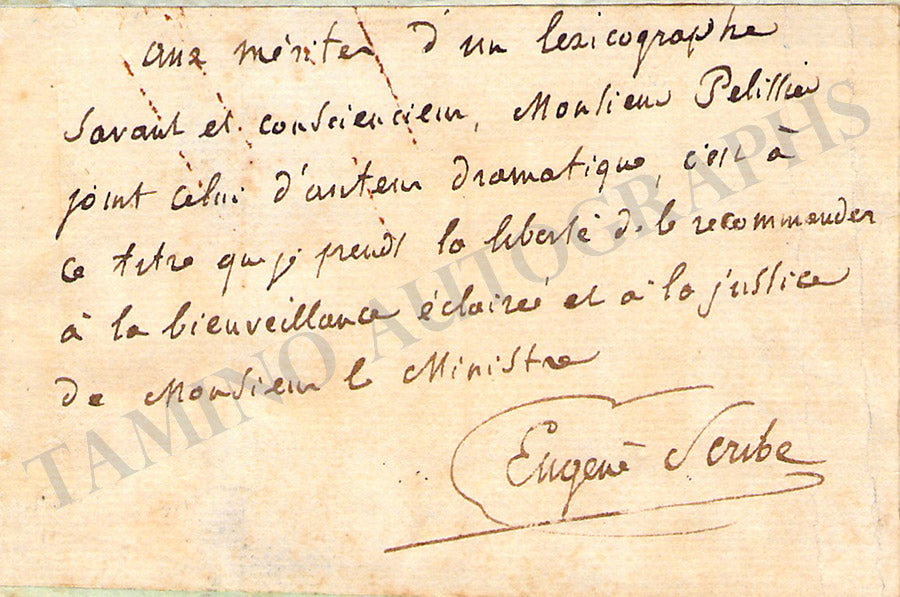 aux mérites d'un lexicographe
savant et consciencieux, Monsieur Pelissier
joint celui d'auteur dramatique, c'est à
ce titre que je prends la liberté de le recommander
à la bienveillance éclairée et à la justice
de Monsieur le Ministre
Eugène Scribe
TAMINO AUTOGRAPHS